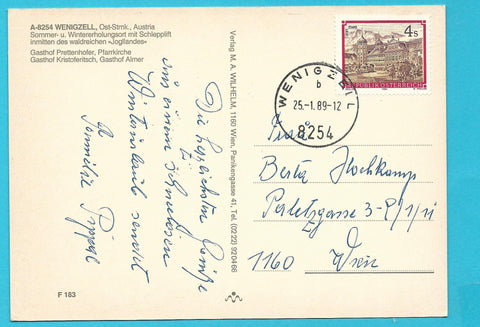 A-8254 WENIGZELL, Ost-Stmk., Austria
Sommer- u. Wintererholungsort mit Schlepplift
inmitten des waldreichen »Jogllandes«
Gasthof Prettenhofer, Pfarrkirche
Gasthof Kristoferitsch, Gasthof Almer
Die herzlichsten Grüße
aus einem schneelosen
Winterurlaub sendet
Familie
F 183
Verlag M. A. WILHELM, 1160 Wien, Panikengasse 41, Tel. (0222) 92 04 66
WENIGZELL
b
25.-1.89-12
8254
4 S
REPUBLIK ÖSTERREICH
Berta Hochkamp
1160 Wien